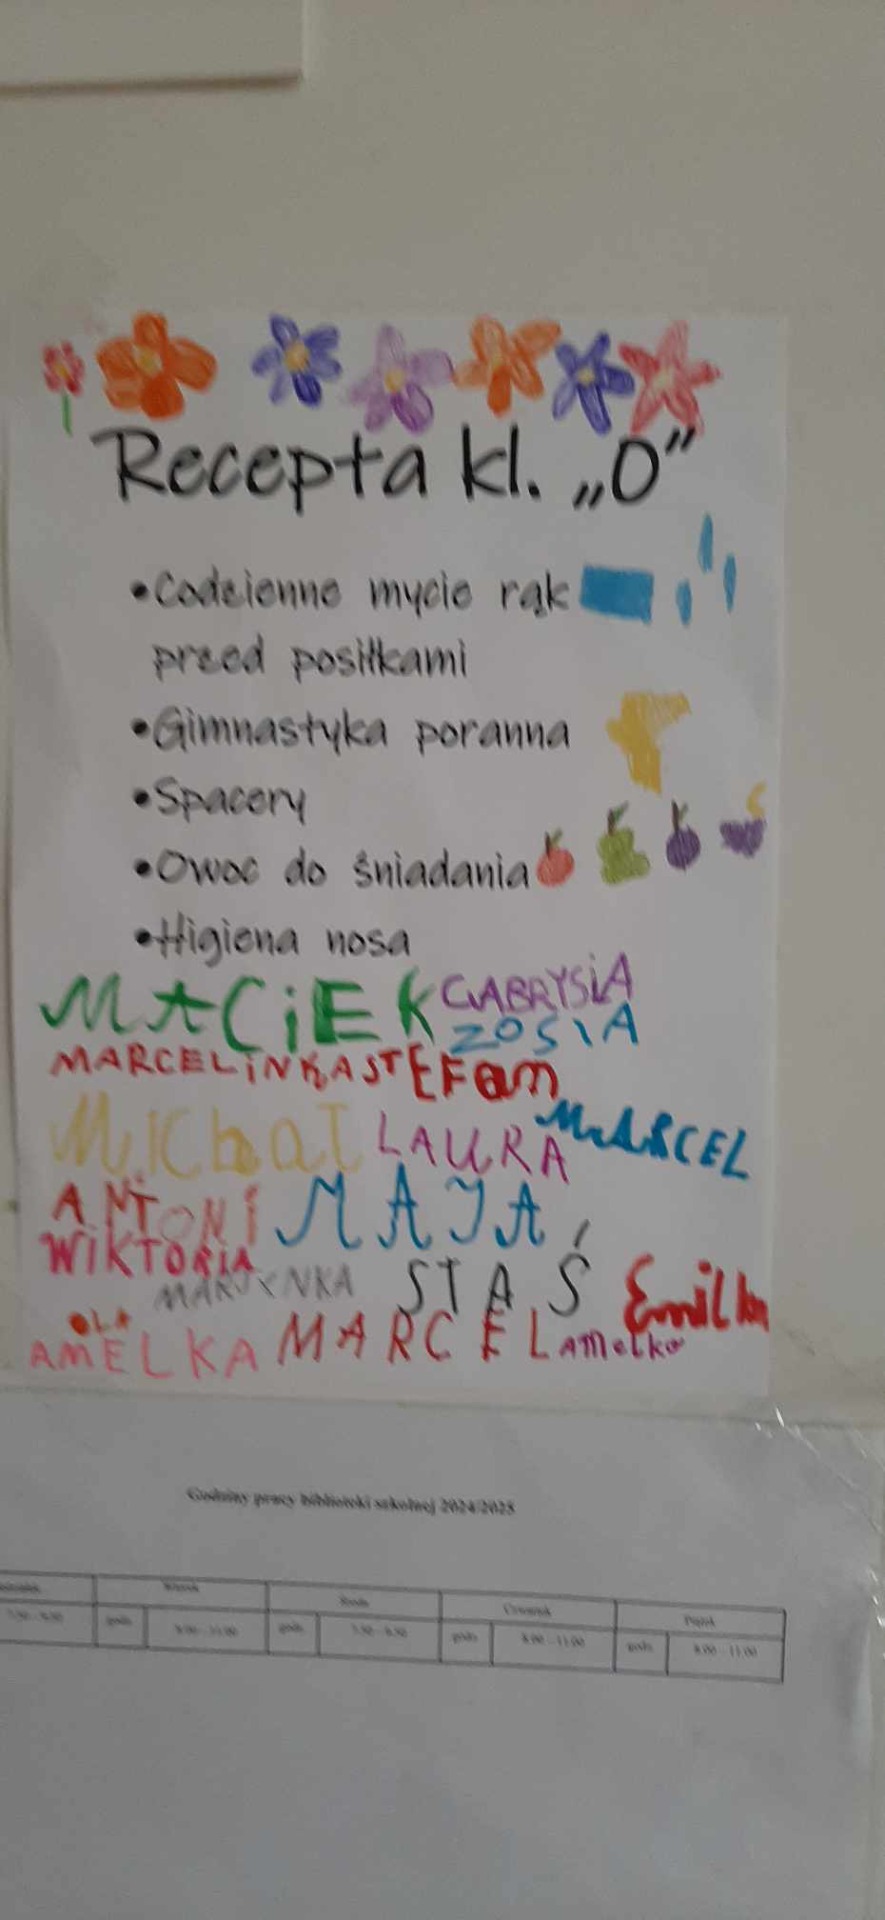 Recepta kl. „0”
•Codzienne mycie rąk
przed posiłkami
•Gimnastyka poranna
•Spacery
•Owoc do śniadania
•Higiena nosa
MACiEK GABRYSiA
ZOSIA
MARCELiNKA STEFan
Michał LAURA MARCEL
ANTONi MAJA
WiKTORiA
MARTYNKA STAŚ Emilka
OLA
AMELKA MARCEL AMelka
Godziny pracy biblioteki szkolnej 2024/2025
Wtorek Środa Czwartek Piątek
7.50 – 9.50 godz. 9.00 – 11.00 godz. 7.50 – 9.50 godz. 8.00 – 11.00 godz. 8.00 – 11.00